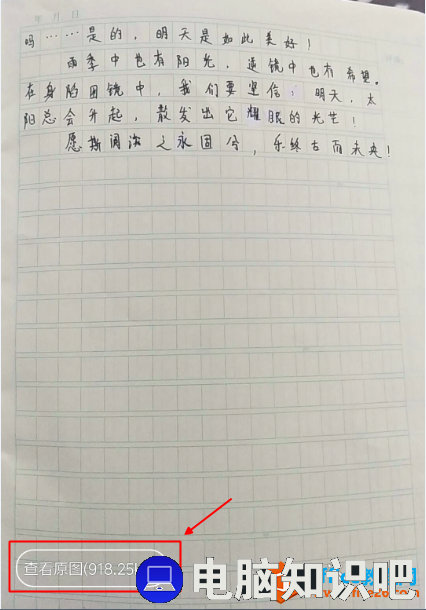 年 月 日
吗……是的，明天是如此美好！
雨季中也有阳光，逆镜中也有希望。
在身陷困镜中，我们要坚信：明天，太
阳总会升起，散发出它耀眼的光芒！
愿斯阁海之永固兮，乐终古而未央！
查看原图(918.25
电脑知识吧